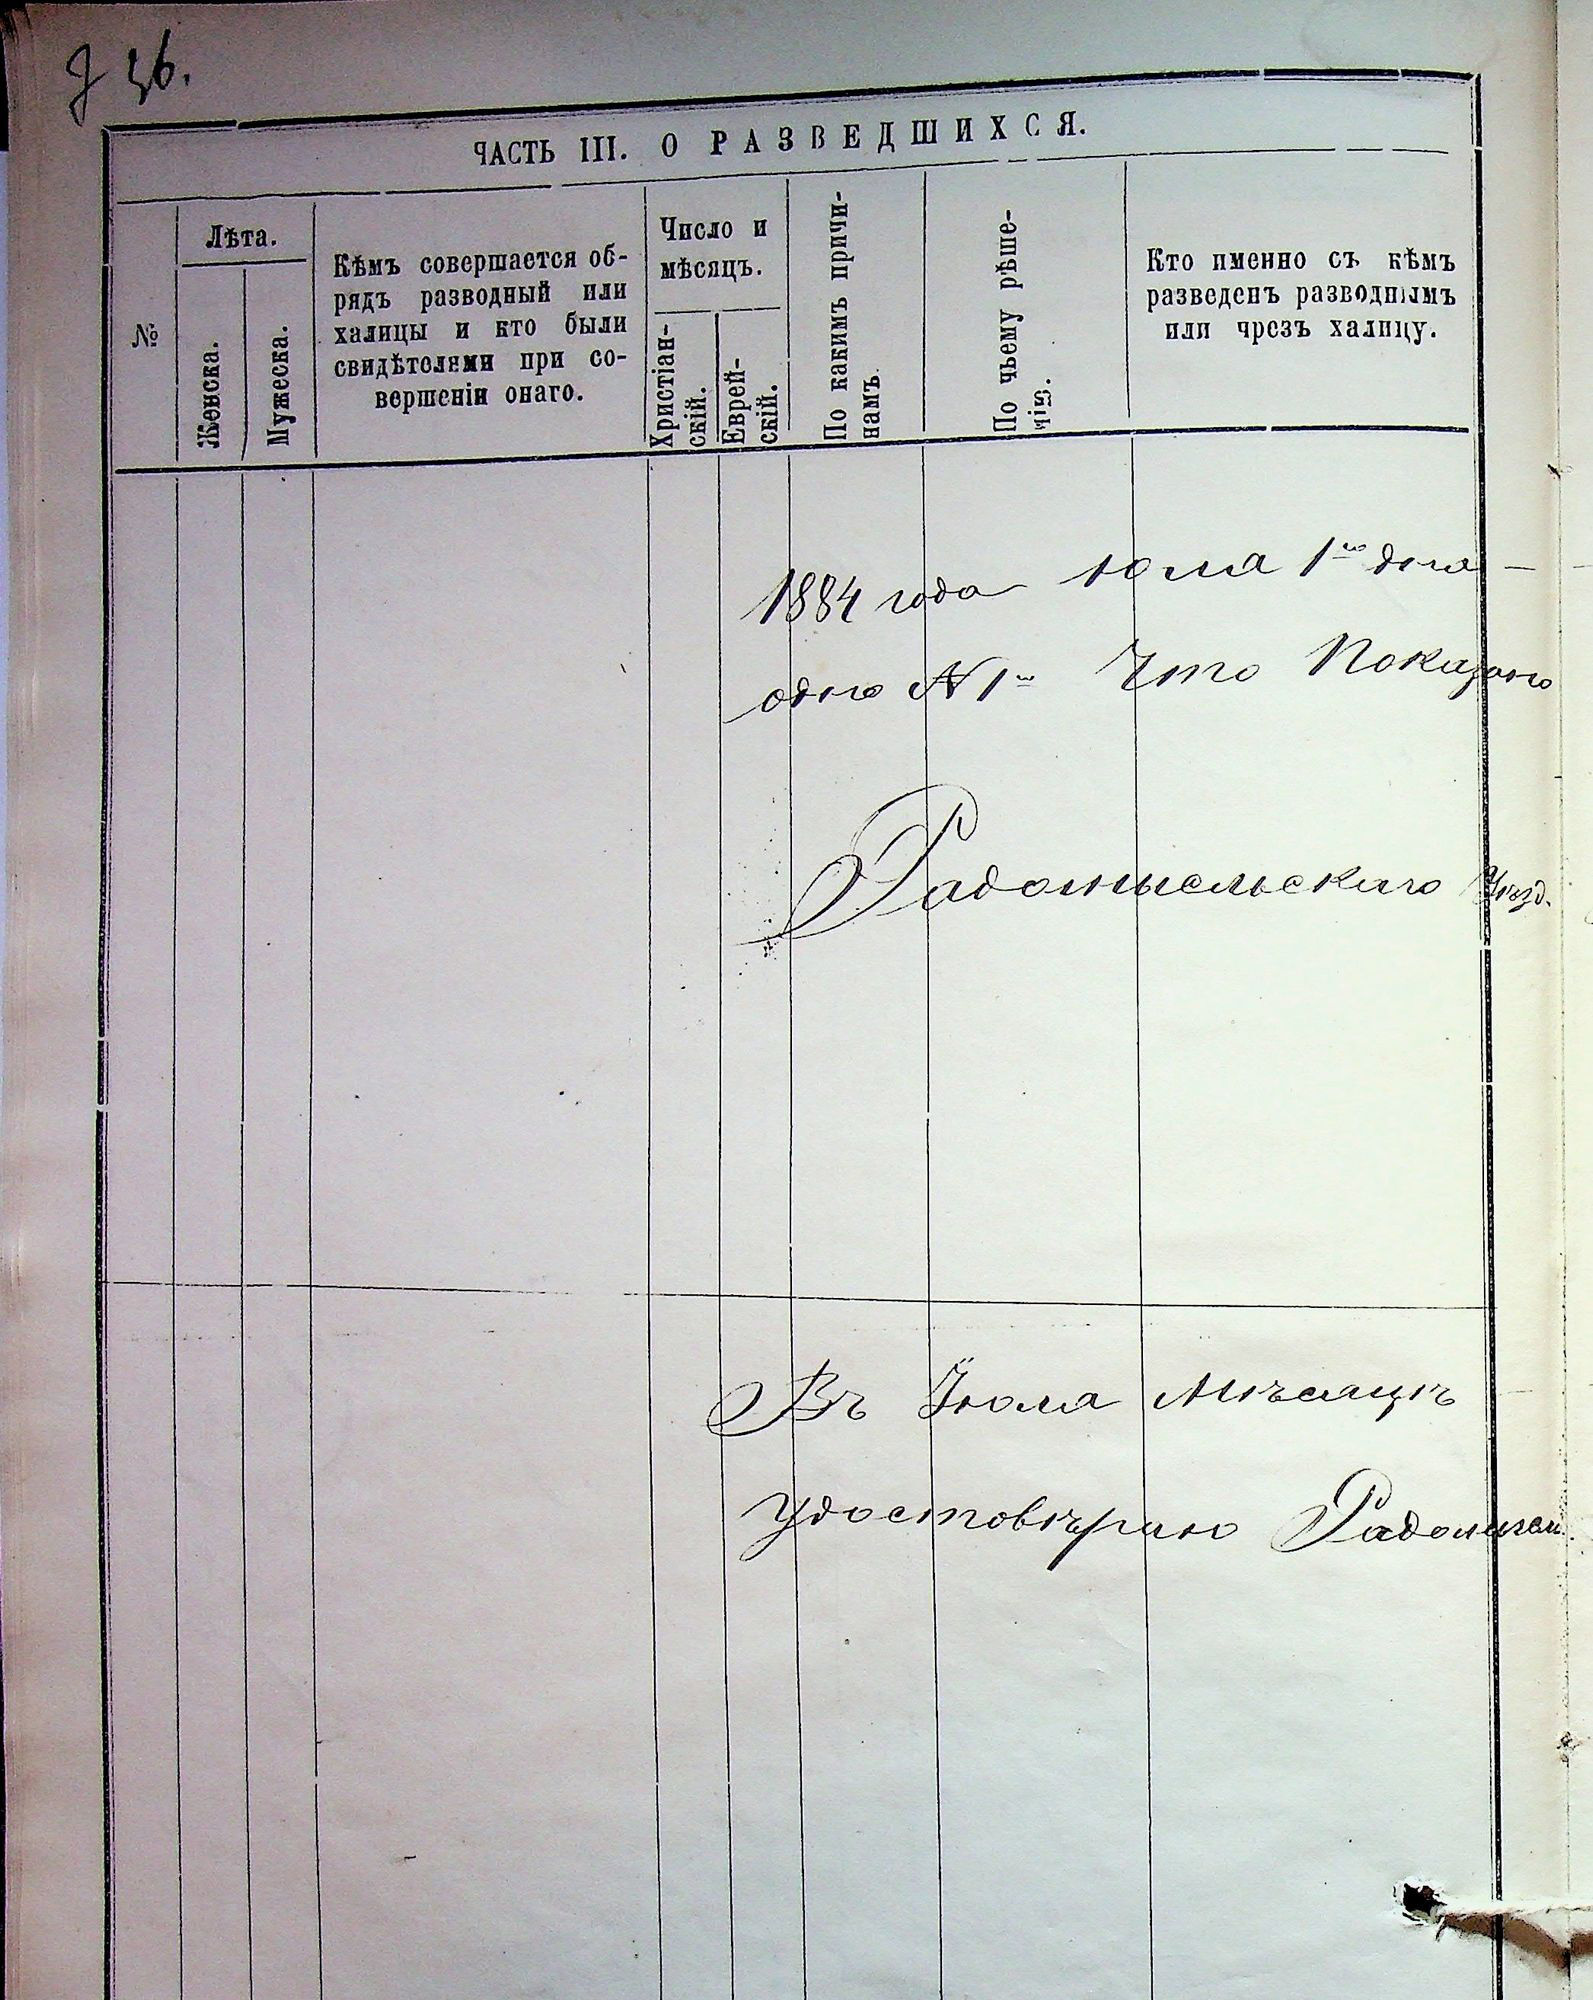 36.
ЧАСТЬ III. О РАЗВЕДШИХСЯ.
№
Лѣта.
Женска.
Мужеска.
Кѣмъ совершается об-
рядъ разводный или
халицы и кто были
свидѣтелями при со-
вершеніи онаго.
Число и
мѣсяцъ.
Христіан-
скій.
Еврей-
скій.
По какимъ причи-
намъ.
По чьему рѣше-
нію.
Кто именно съ кѣмъ
разведенъ разводнымъ
или чрезъ халицу.
1884 года юля 1го дня
одно №1й Что показано
Радомысльскаго Уѣзд.
Въ Іюля мѣсяцѣ
удостовѣряю Радомысл